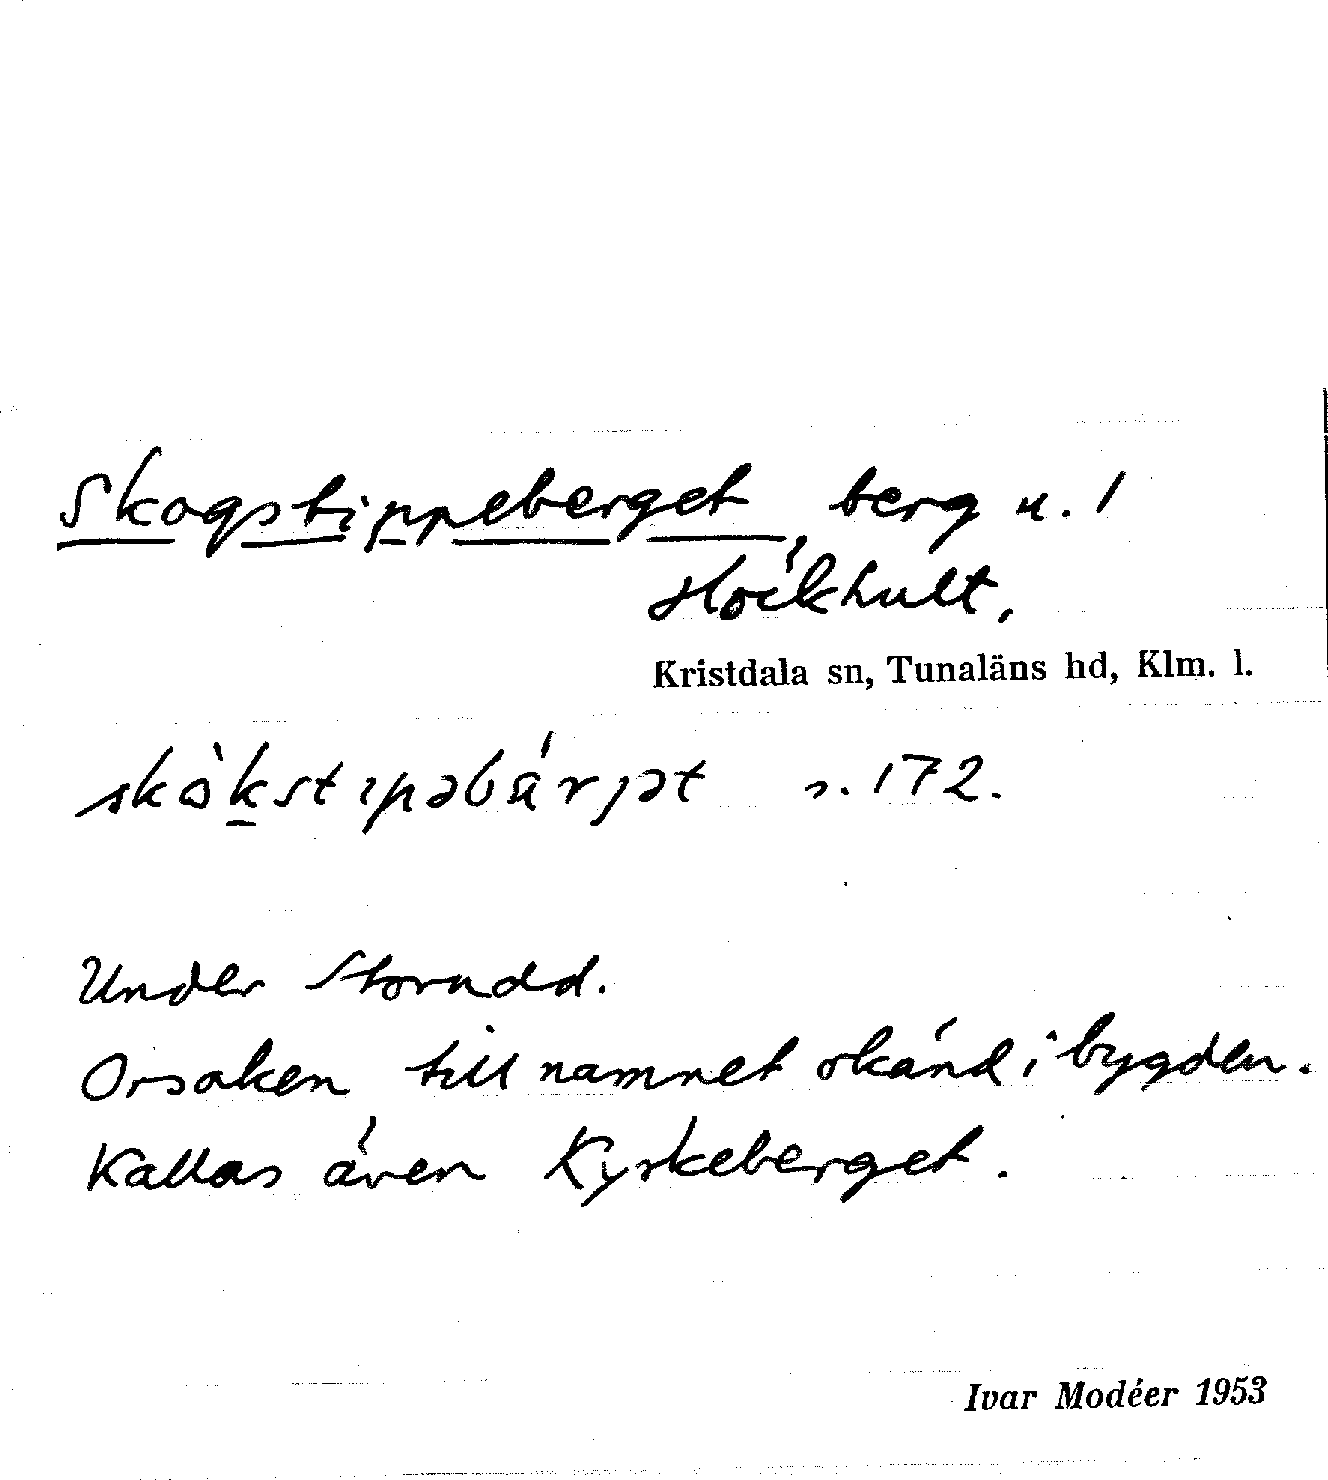 Skogstippeberget, berg u. 1
Höckhult,
Kristdala sn, Tunaläns hd, Klm. l.
s. 172.
Under Storudd.
Orsaken till namnet okänd i bygden.
Kallas även Kyrkeberget.
Ivar Modéer 1953